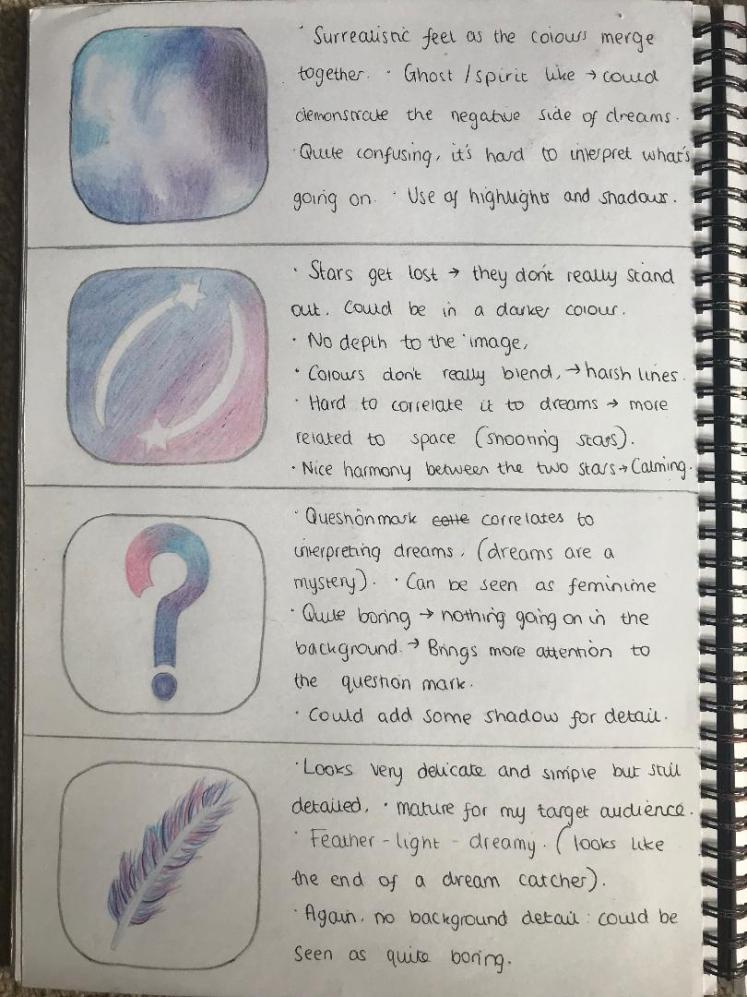 · Surrealistic feel as the colours merge
together. · Ghost / spirit like → could
demonstrate the negative side of dreams.
· Quite confusing, it's hard to interpret what's
going on. · Use of highlights and shadows.
· Stars get lost → they don't really stand
out. Could be in a darker colour.
· No depth to the image,
· Colours don't really blend, → harsh lines.
· Hard to correlate it to dreams → more
related to space (shooting stars).
· Nice harmony between the two stars → Calming.
· Question mark correlates to
interpreting dreams. (dreams are a
mystery). · Can be seen as feminime
· Quite boring → nothing going on in the
background. → Brings more attention to
the question mark.
· Could add some shadow for detail.
· Looks very delicate and simple but still
detailed. · mature for my target audience.
· Feather - light - dreamy. (looks like
the end of a dream catcher).
· Again, no background detail : could be
seen as quite boring.